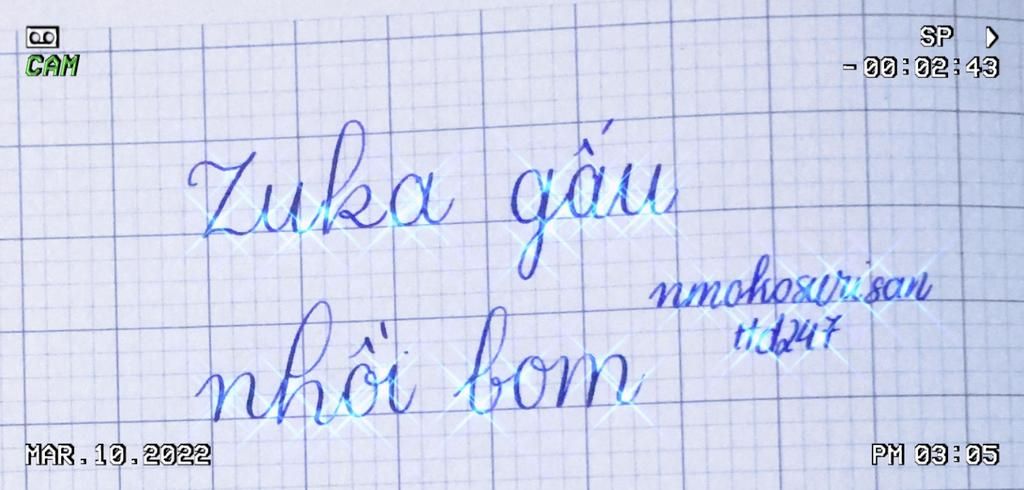 CAM
SP
-00:02:43
Zuka gấu
nmokosurisan
ttd247
nhồi bom
MAR.10.2022
PM 03:05